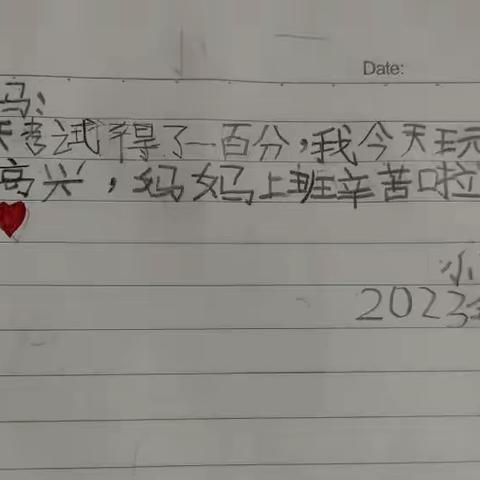 Date:
妈:
天考试得了一百分,我今天玩
高兴,妈妈上班辛苦啦
小
2023年